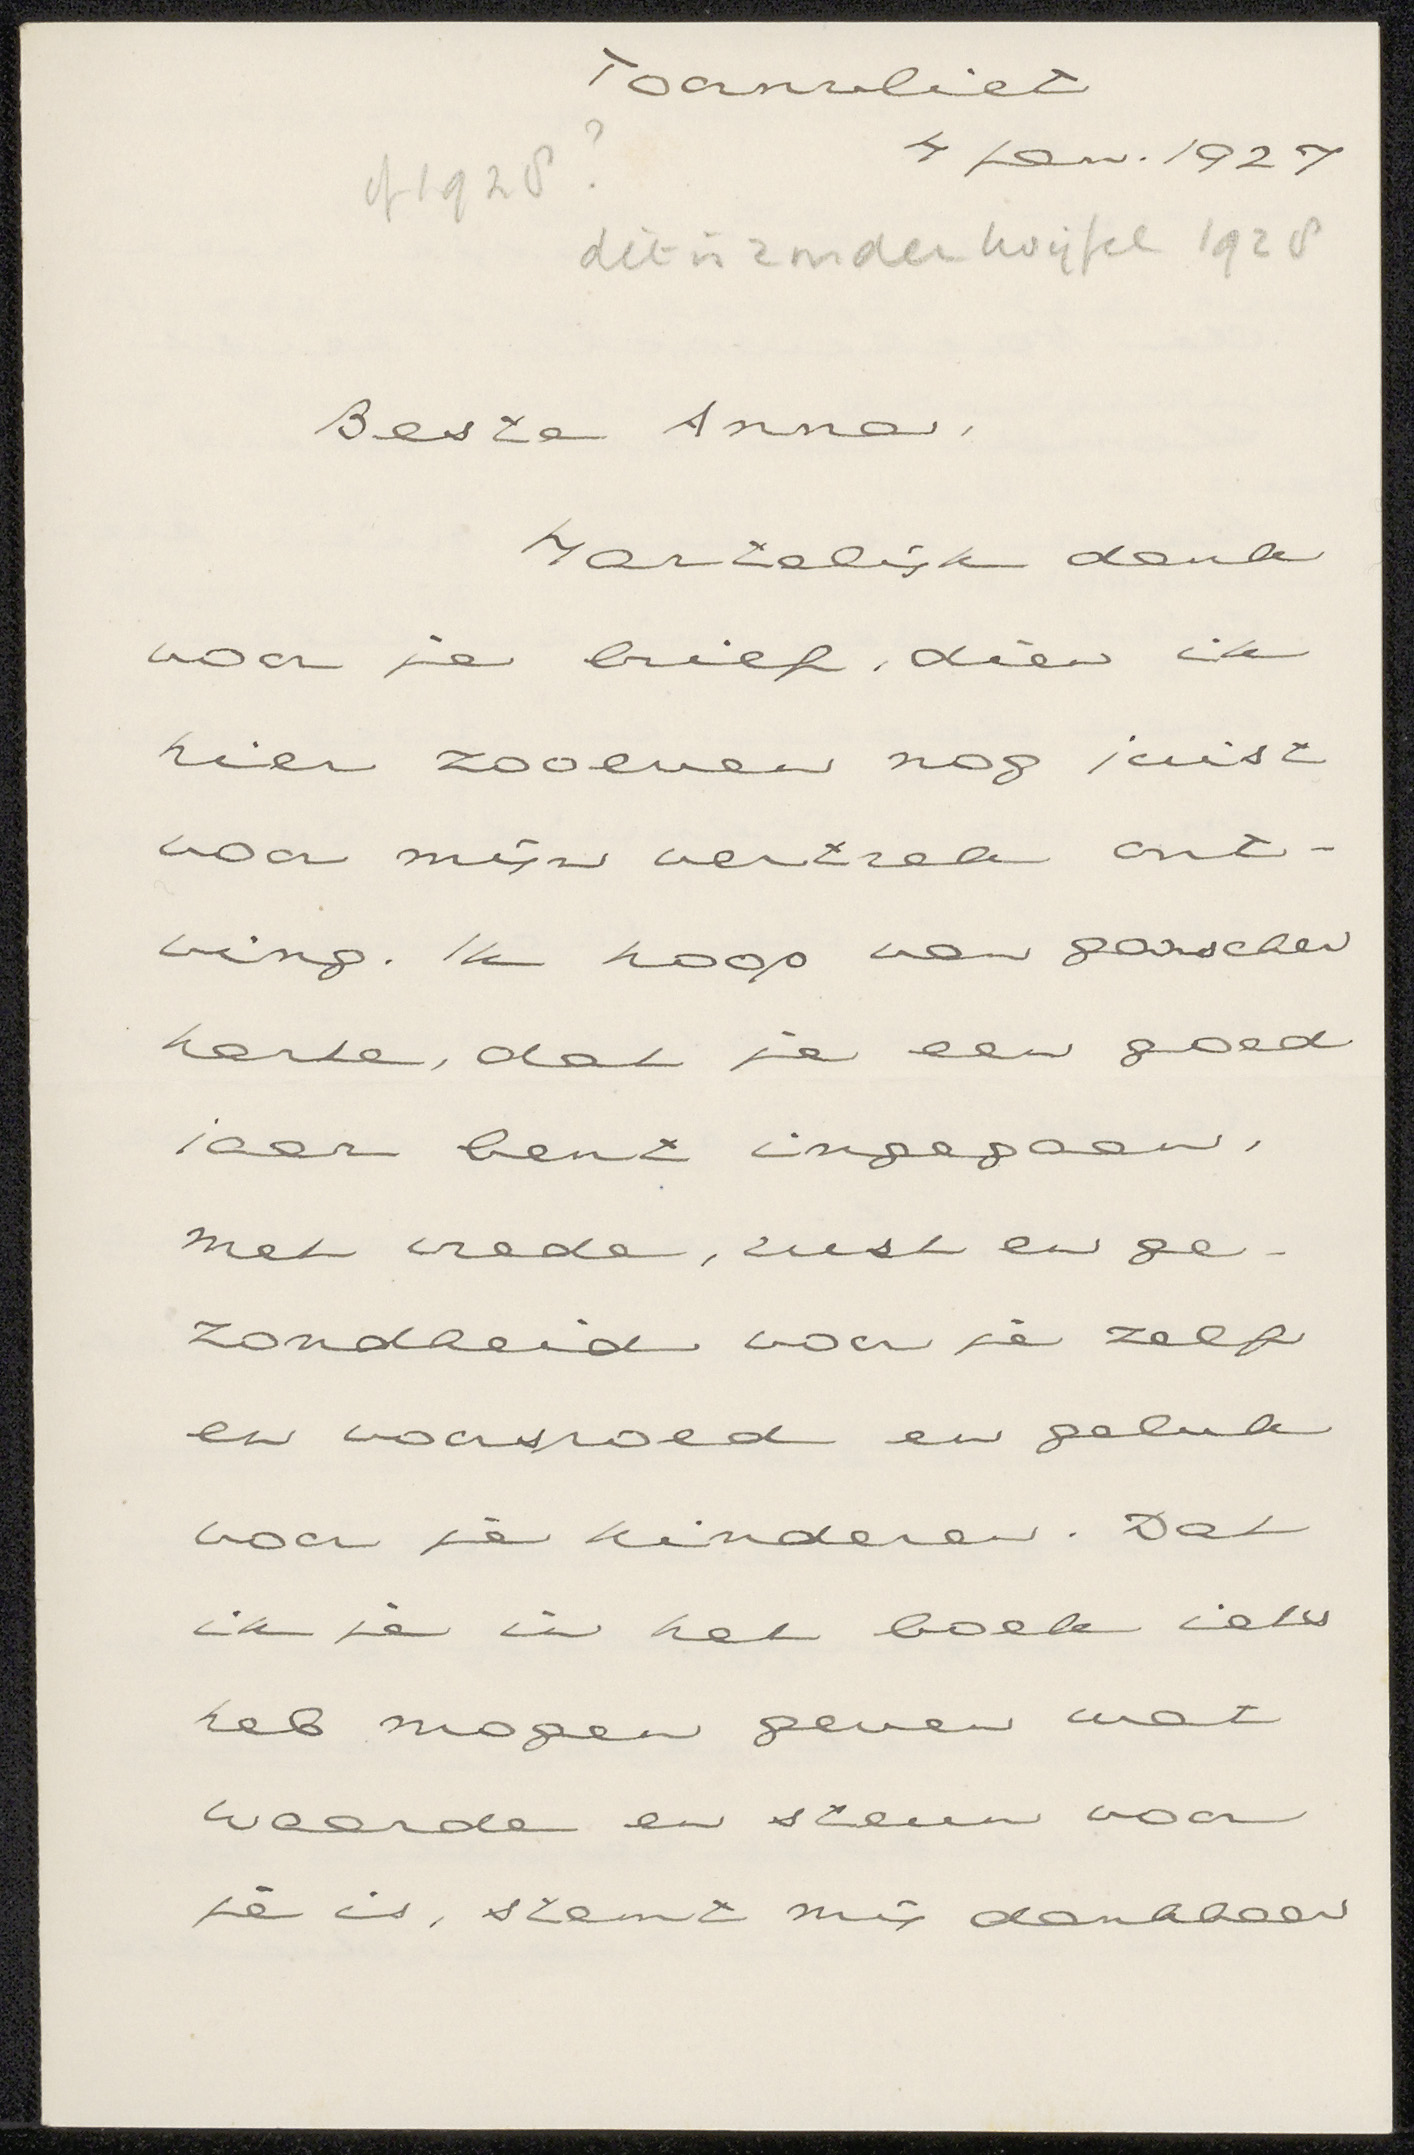 Toornvliet
4 Jan. 1927
of 1928?
dit is zonder twijfel 1928
Beste Anna,
Hartelijk dank
voor je brief, dien ik
hier zooeven nog juist
voor mijn vertrek ont-
ving. Ik hoop van ganscher
harte, dat je een goed
jaar bent ingegaan,
met vrede, rust en ge-
zondheid voor je zelf
en voorspoed en geluk
voor je kinderen. Dat
ik je in het boek iets
heb mogen geven wat
waarde en steun voor
je is, stemt mij dankbaar